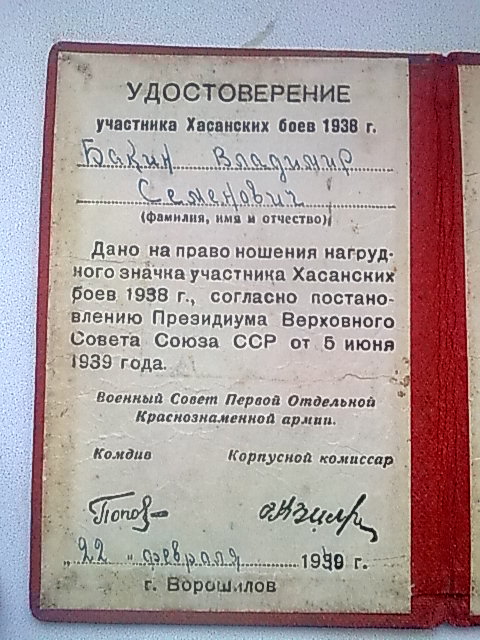 УДОСТОВЕРЕНИЕ
участника Хасанских боев 1938 г.
Бакин Владимир
Семенович
(фамилия, имя и отчество)
Дано на право ношения нагруд-
ного значка участника Хасанских
боев 1938 г., согласно постано-
влению Президиума Верховного
Совета Союза ССР от 5 июня
1939 года.
Военный Совет Первой Отдельной
Краснознаменной армии.
Комдив Корпусной комиссар
Попов
„22 " февраля 1940 г.
г. Ворошилов